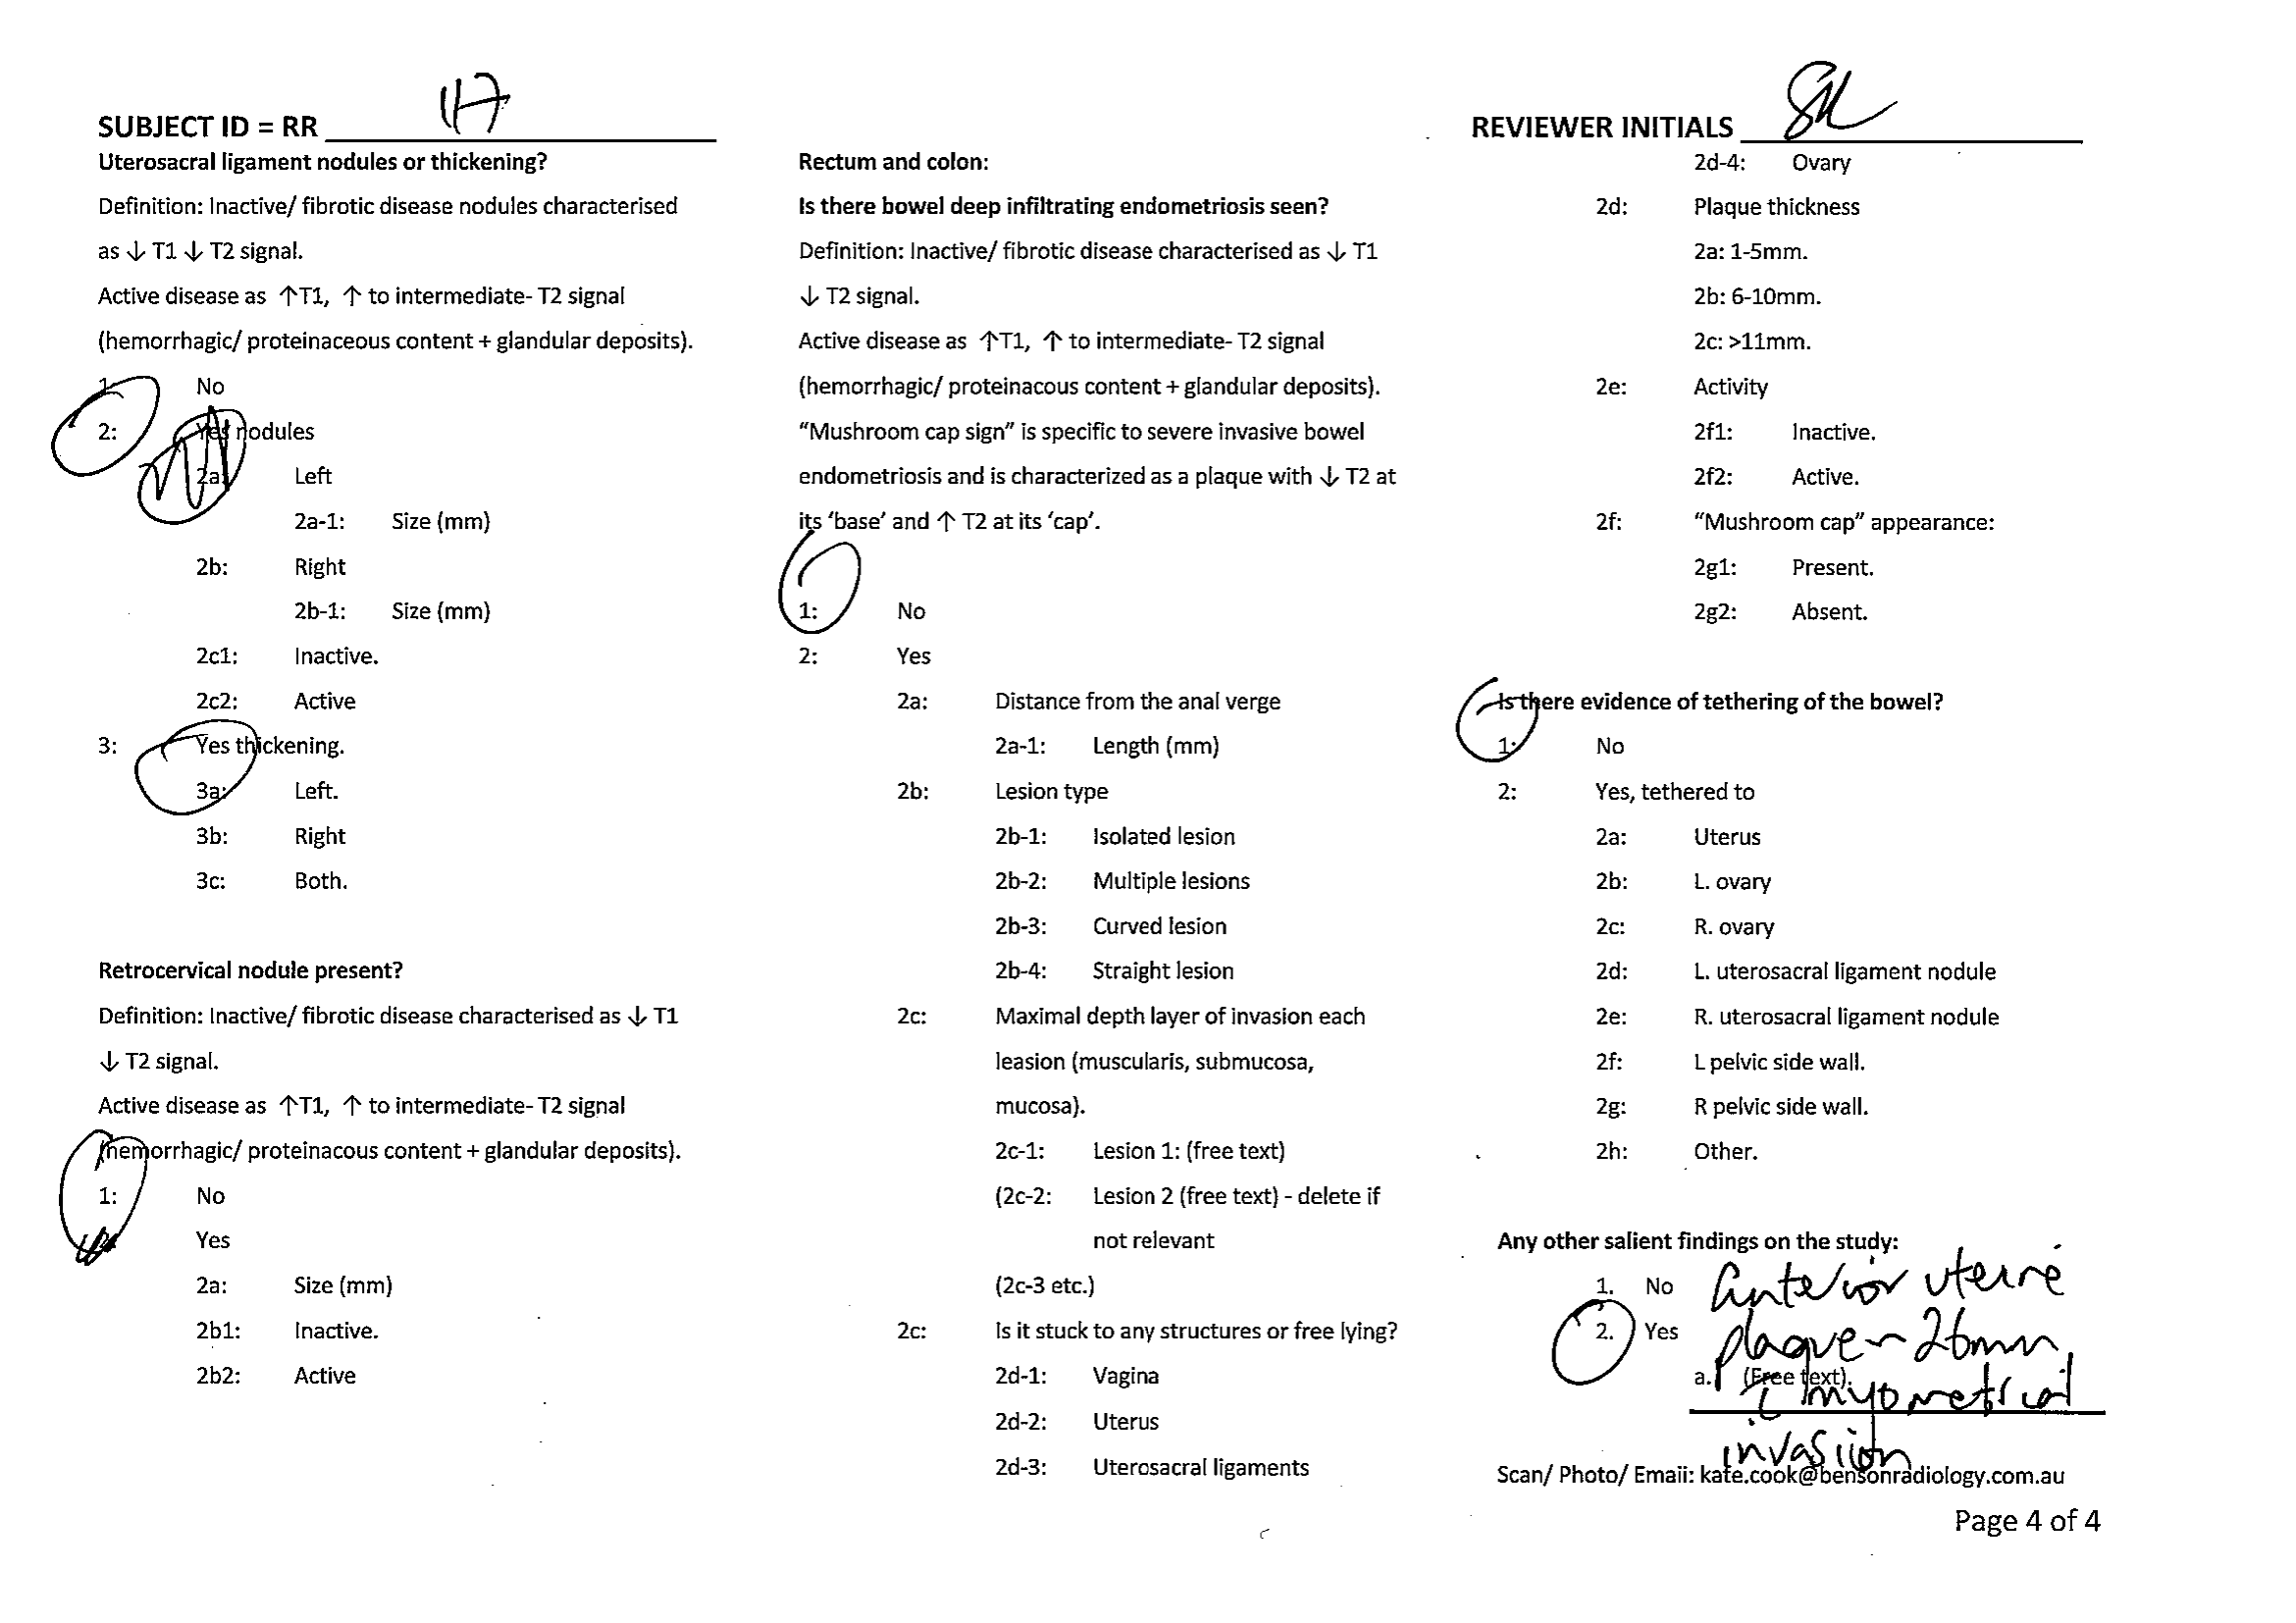 SUBJECT ID = RR 117
REVIEWER INITIALS
Uterosacral ligament nodules or thickening?
Definition: Inactive/ fibrotic disease nodules characterised
as ↓ T1 ↓ T2 signal.
Active disease as ↑T1, ↑ to intermediate- T2 signal
(hemorrhagic/ proteinaceous content + glandular deposits).
1: No
2: Yes nodules
2a: Left
2a-1: Size (mm)
2b: Right
2b-1: Size (mm)
2c1: Inactive.
2c2: Active
3: Yes thickening.
3a: Left.
3b: Right
3c: Both.
Retrocervical nodule present?
Definition: Inactive/ fibrotic disease characterised as ↓ T1
↓ T2 signal.
Active disease as ↑T1, ↑ to intermediate- T2 signal
(hemorrhagic/ proteinacous content + glandular deposits).
1: No
Yes
2a: Size (mm)
2b1: Inactive.
2b2: Active
Rectum and colon:
Is there bowel deep infiltrating endometriosis seen?
Definition: Inactive/ fibrotic disease characterised as ↓ T1
↓ T2 signal.
Active disease as ↑T1, ↑ to intermediate- T2 signal
(hemorrhagic/ proteinacous content + glandular deposits).
“Mushroom cap sign” is specific to severe invasive bowel
endometriosis and is characterized as a plaque with ↓ T2 at
its ‘base’ and ↑ T2 at its ‘cap’.
1: No
2: Yes
2a: Distance from the anal verge
2a-1: Length (mm)
2b: Lesion type
2b-1: Isolated lesion
2b-2: Multiple lesions
2b-3: Curved lesion
2b-4: Straight lesion
2c: Maximal depth layer of invasion each
leasion (muscularis, submucosa,
mucosa).
2c-1: Lesion 1: (free text)
(2c-2: Lesion 2 (free text) - delete if
not relevant
(2c-3 etc.)
2c: Is it stuck to any structures or free lying?
2d-1: Vagina
2d-2: Uterus
2d-3: Uterosacral ligaments
2d-4: Ovary
2d: Plaque thickness
2a: 1-5mm.
2b: 6-10mm.
2c: >11mm.
2e: Activity
2f1: Inactive.
2f2: Active.
2f: “Mushroom cap” appearance:
2g1: Present.
2g2: Absent.
Is there evidence of tethering of the bowel?
1: No
2: Yes, tethered to
2a: Uterus
2b: L. ovary
2c: R. ovary
2d: L. uterosacral ligament nodule
2e: R. uterosacral ligament nodule
2f: L pelvic side wall.
2g: R pelvic side wall.
2h: Other.
Any other salient findings on the study:
1. No anterior uterine
2. Yes plaque ~ 26mm
a. (Free text).
myometrial
invasiion
Scan/ Photo/ Email: kate.cook@bensonradiology.com.au
Page 4 of 4